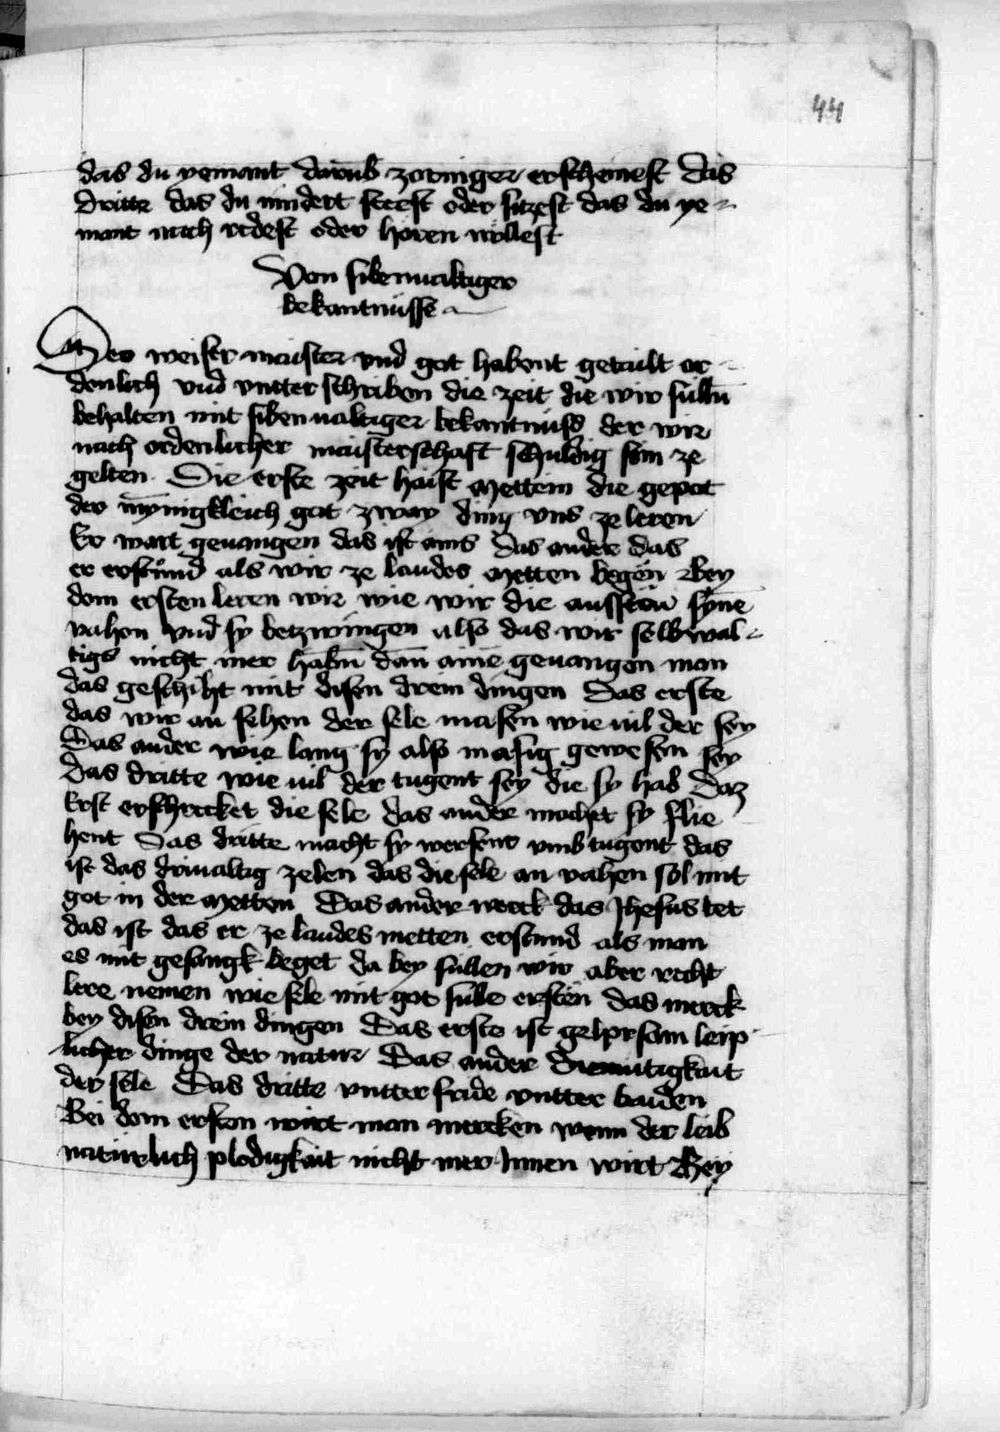 44
das du yemant darumb zorniger erscheinest Das
dritte das du nindert steest oder sitzest das du ye-
mant nach redest oder horen wöllest
Von sibenualtiger
bekantnüsse
Der weiser maister vnd got habent getailt or-
denlich vnd vntterschriben die zeit die wir sülln̄
behalten mit sibenualtiger bekantnüss der wir
nach ordenlicher maisterschaft schuldig sein ze
gelten Die erste zeit haist Mettein die gepot
der mynnigkleich got zway ding vns ze leren
Er wart geuangen das ist ains Das ander das
er erstuͤnd als wir ze laudes Metten begen Bey
dem ersten leren wir wie wir die aussern̄ synne
vahen vnd sy betzwingen also das wir selbwal-
tigs nicht mer habn̄ dan̄ aine geuangen man
das geschiht mit disen drein dingen Das erste
das wir an sehen der sele masen wie uil der sey
Das ander wie lang sy also masig gewesen sey
das dritte wie uil der tugent sey die sy hab Daz
Erst erschrecket die sele das ander machet sy flie
hent Das dritte macht sy werfent vmb tugent das
ist das driualtig zelen das die sele an vahen sol mit
got in der Metten Das ander werck das Jhesus tet
das ist das er ze laudes metten erstund als man
es mit gesangk beget da bey süllen wir aber recht
lere nemen wie sele mit got sülle ersten das merck
bey disen drein dingen Das erste ist gelprsam leip-
licher dinge der natur Das ander Diemütigkait
der sele Das dritte vntter fride vntter baiden
Bei dem ersten wirt man mercken wenn der leib
natürlich plodigkait nicht mer Innen wirt Bey